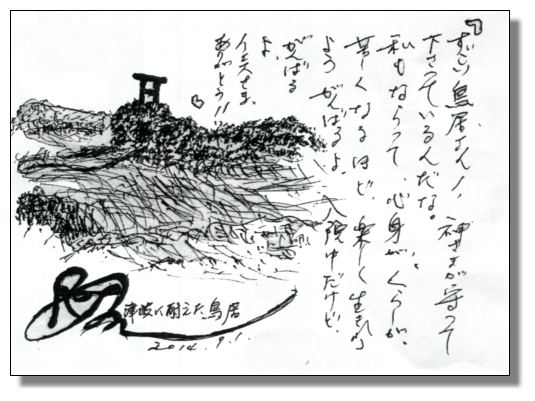 すごい鳥居さん！！神さまが守って
下さっているんだな。
私もならって、心身が、くらしが、
苦しくなるほど、楽しく生きれる
ようがんばるよ、入院中だけど、
がんばる
よ、
イエスさま、
ありがとう!!
津波に耐えた鳥居
2014.9.1.